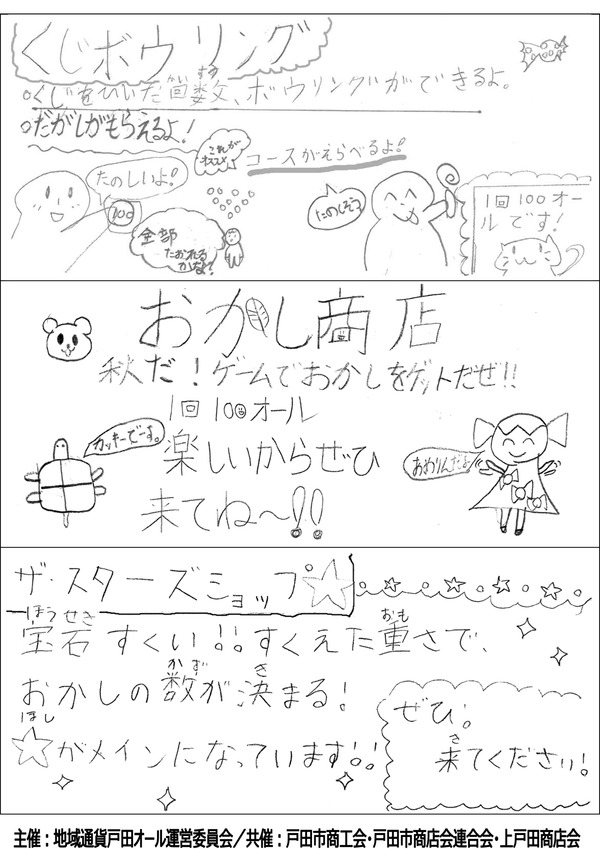 くじボウリング
くじをひいた回数文、ボウリングができるよ。
かいすう
だがしがもらえるよ！
これがオススメ
コースがえらべるよ！
たのしいよ！
100
全部たおれるかな？
たのしそう
1回100オールです！
おかし商店
秋だ！ゲームでおかしをゲットだぜ!!
1回100オール
カッキーでーす。
楽しいからぜひ
おわりんだよ
来てね〜!!
ザ・スターズショップ☆
ほうせき
おも
宝石すくい!!すくえた重さで、
かず
き
おかしの数が決まる！
ほし
☆がメインになっています!!
ぜひ！
き
来てください！
主催：地域通貨戸田オール運営委員会／共催：戸田市商工会・戸田市商店会連合会・上戸田商店会